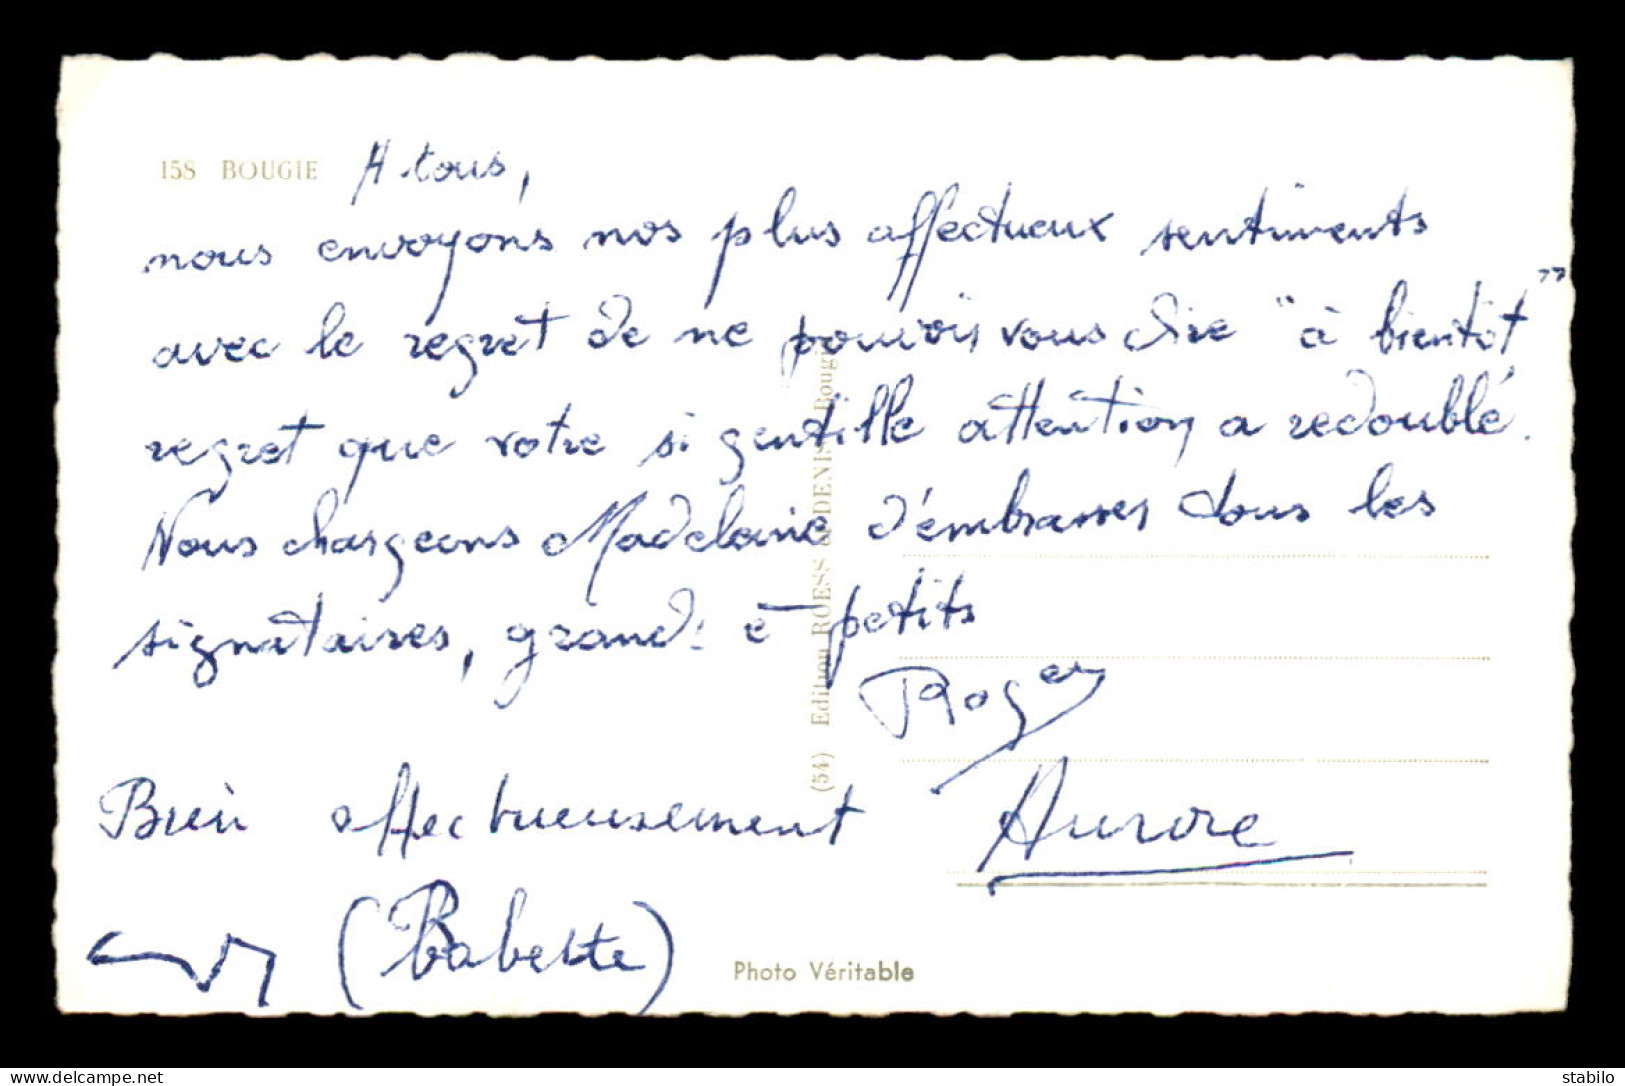 158 BOUGIE
A tous,
nous envoyons nos plus affectueux sentiments
avec le regret de ne pouvoir vous dire "à bientôt"
regret que votre si gentille attention a redoublé.
Nous chargeons Madelaine d'embrasser tous les
signataires, grands et petits
Roger
Bien affectueusement Aurore
(Babette)
(54) Edition ROESS & DENIS Bougie
Photo Véritable
www.delcampe.net
stabilo